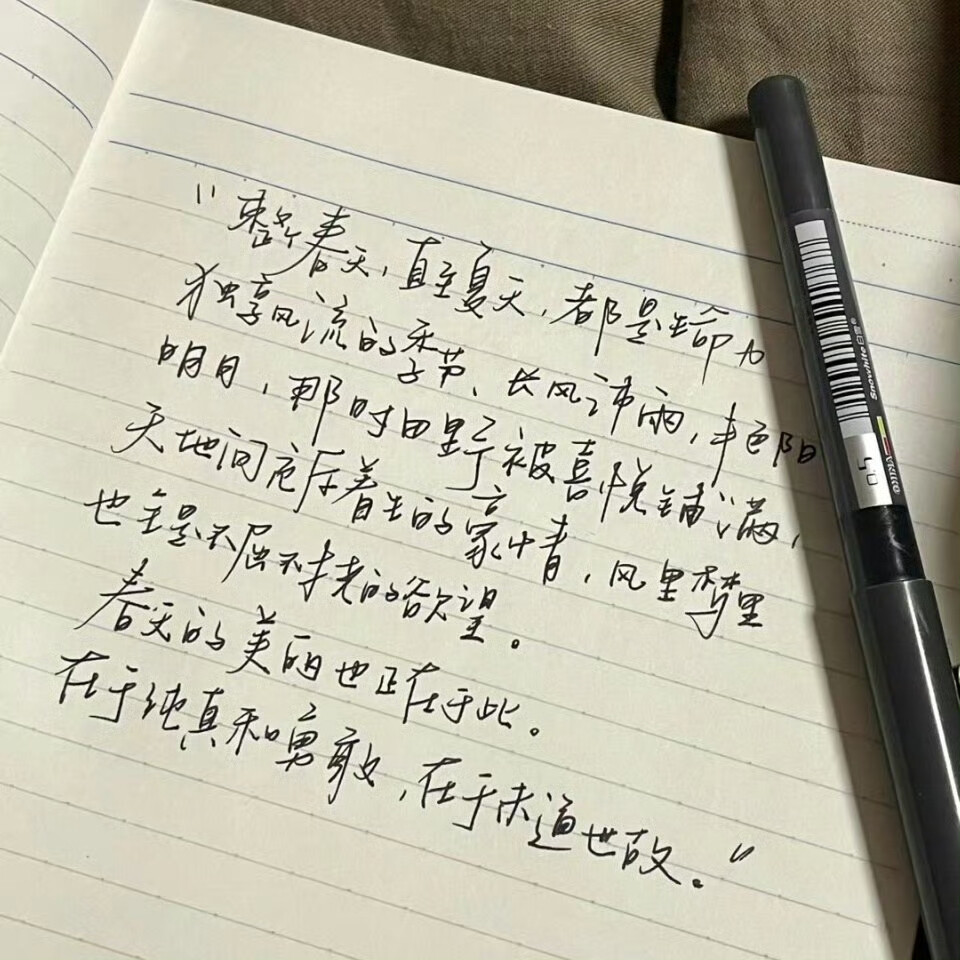 “整个春天，直至夏天，都是生命力
独享风流的季节，长风沛雨，丰色阳
明月，那时田野被喜悦铺满，
天地间充斥着生的豪情，风里梦里
也全是不屈不挠的欲望。
春天的美丽也正在于此。
在于纯真和勇敢，在于未通世故。”
Snowhite 白雪
0.5